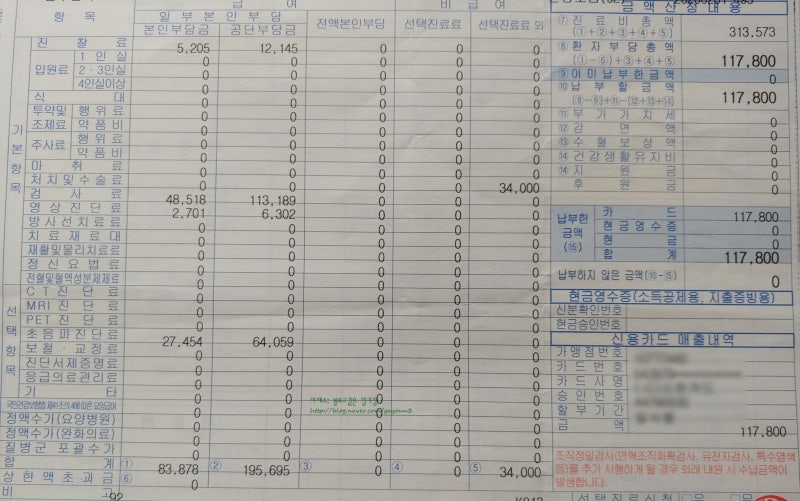 항목
급여
비급여
일부본인부담
본인부담금 공단부담금 전액본인부담 선택진료료 선택진료료 외
기본항목
진찰료 5,205 12,145 0 0 0
입원료
1인실 0 0 0 0 0
2·3인실 0 0 0 0 0
4인실이상 0 0 0 0 0
식대 0 0 0 0 0
투약및조제료
행위료 0 0 0 0 0
약품비 0 0 0 0 0
주사료
행위료 0 0 0 0 0
약품비 0 0 0 0 0
마취료 0 0 0 0 0
처치및수술료 0 0 0 0 34,000
검사료 48,518 113,189 0 0 0
영상진단료 2,701 6,302 0 0 0
방사선치료료 0 0 0 0 0
치료재료대 0 0 0 0 0
재활및물리치료료 0 0 0 0 0
정신요법료 0 0 0 0 0
전혈및혈액성분제제료 0 0 0 0 0
선택항목
CT진단료 0 0 0 0 0
MRI진단료 0 0 0 0 0
PET진단료 0 0 0 0 0
초음파진단료 27,454 64,059 0 0 0
보철·교정료 0 0 0 0 0
진단서제증명료 0 0 0 0 0
응급의료관리료 0 0 0 0 0
기타 0 0 0 0 0
정액수가(요양병원) 0 0 0 0 0
정액수가(완화의료) 0 0 0 0 0
질병군 포괄수가 0 0 0 0 0
합계 ① 83,878 ② 195,695 ③ 0 ④ 0 ⑤ 34,000
상한액초과금 ⑥ 0
비고
금액산정내용
⑦ 진료비총액
(①+②+③+④+⑤) 313,573
⑧ 환자부담총액
(①-⑥)+③+④+⑤ 117,800
⑨ 이미납부한금액 0
⑩ 납부할금액
(⑧-⑨)+⑪-(⑫+⑬+⑭) 117,800
⑪ 부가가치세 0
⑫ 감면액 0
⑬ 수혈보상액 0
⑭ 건강생활유지비 0
⑭ 지원금 0
후원금 0
납부한 금액 (⑮)
카드 117,800
현금영수증 0
현금 0
합계 117,800
납부하지 않은 금액(⑩-⑮) 0
현금영수증(소득공제용, 지출증빙용)
신분확인번호
현금승인번호
신용카드 매출내역
가맹점번호
카드번호
카드사명
승인번호
할부기간
금액 117,800
조직정밀검사(면역조직화학검사, 유전자검사, 특수염색
등)를 추가 시행하게 될 경우 외래 내원 시 수납금액이
발생합니다.